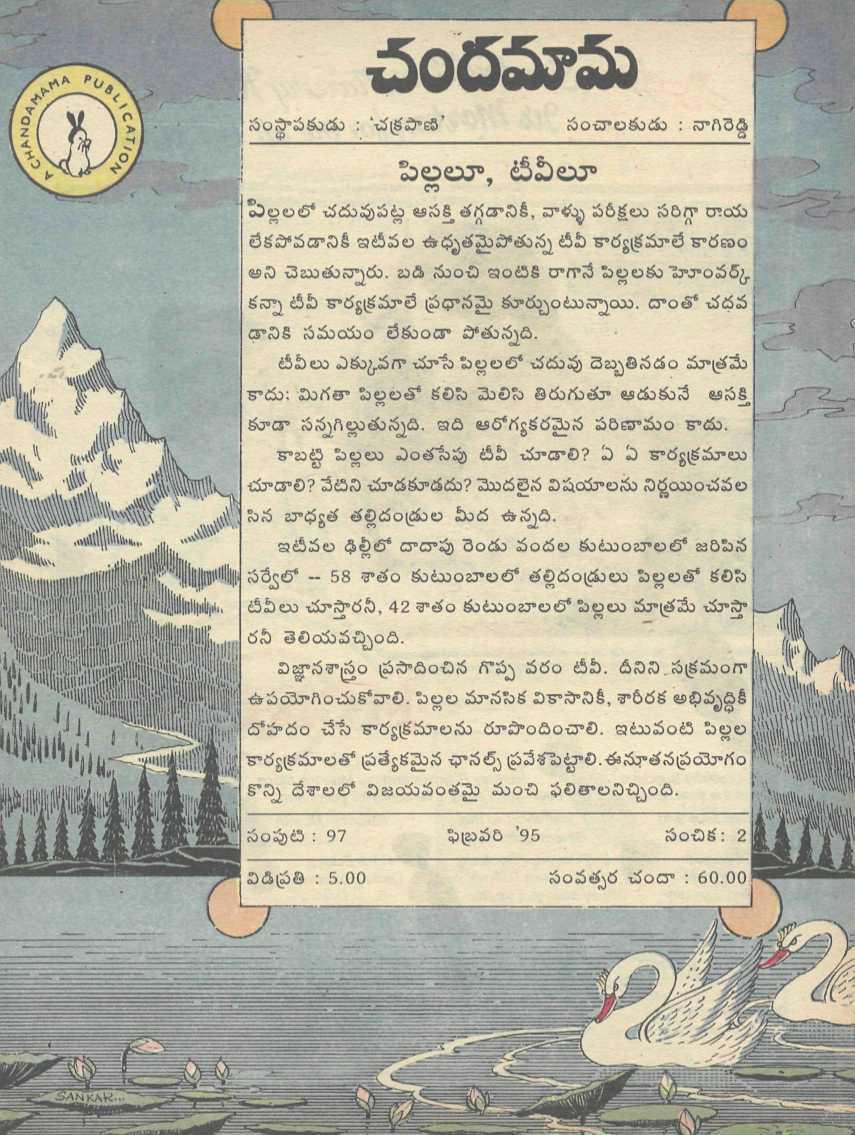 A CHANDAMAMA PUBLICATION
చందమామ
సంస్థాపకుడు : ‘చక్రపాణి’ సంచాలకుడు : నాగిరెడ్డి
పిల్లలూ, టీవీలూ
పిల్లలలో చదువుపట్ల ఆసక్తి తగ్గడానికీ, వాళ్ళు పరీక్షలు సరిగ్గా రాయ
లేకపోవడానికీ ఇటీవల ఉధృతమైపోతున్న టీవీ కార్యక్రమాలే కారణం
అని చెబుతున్నారు. బడి నుంచి ఇంటికి రాగానే పిల్లలకు హెూంవర్క్
కన్నా టీవీ కార్యక్రమాలే ప్రధానమై కూర్చుంటున్నాయి. దాంతో చదవ
డానికి సమయం లేకుండా పోతున్నది.
టీవీలు ఎక్కువగా చూసే పిల్లలలో చదువు దెబ్బతినడం మాత్రమే
కాదు; మిగతా పిల్లలతో కలిసి మెలిసి తిరుగుతూ ఆడుకునే ఆసక్తి
కూడా సన్నగిల్లుతున్నది. ఇది ఆరోగ్యకరమైన పరిణామం కాదు.
కాబట్టి పిల్లలు ఎంతసేపు టీవీ చూడాలి? ఏ ఏ కార్యక్రమాలు
చూడాలి? వేటిని చూడకూడదు? మొదలైన విషయాలను నిర్ణయించవల
సిన బాధ్యత తల్లిదండ్రుల మీద ఉన్నది.
ఇటీవల ఢిల్లీలో దాదాపు రెండు వందల కుటుంబాలలో జరిపిన
సర్వేలో -- 58 శాతం కుటుంబాలలో తల్లిదండ్రులు పిల్లలతో కలిసి
టీవీలు చూస్తారనీ, 42 శాతం కుటుంబాలలో పిల్లలు మాత్రమే చూస్తా
రనీ తెలియవచ్చింది.
విజ్ఞానశాస్త్రం ప్రసాదించిన గొప్ప వరం టీవీ. దీనిని సక్రమంగా
ఉపయోగించుకోవాలి. పిల్లల మానసిక వికాసానికీ, శారీరక అభివృద్ధికీ
దోహదం చేసే కార్యక్రమాలను రూపొందించాలి. ఇటువంటి పిల్లల
కార్యక్రమాలతో ప్రత్యేకమైన ఛానల్స్ ప్రవేశపెట్టాలి.ఈనూతనప్రయోగం
కొన్ని దేశాలలో విజయవంతమై మంచి ఫలితాలనిచ్చింది.
సంపుటి : 97 ఫిబ్రవరి '95 సంచిక: 2
విడిప్రతి : 5.00 సంవత్సర చందా : 60.00
SANKAR...